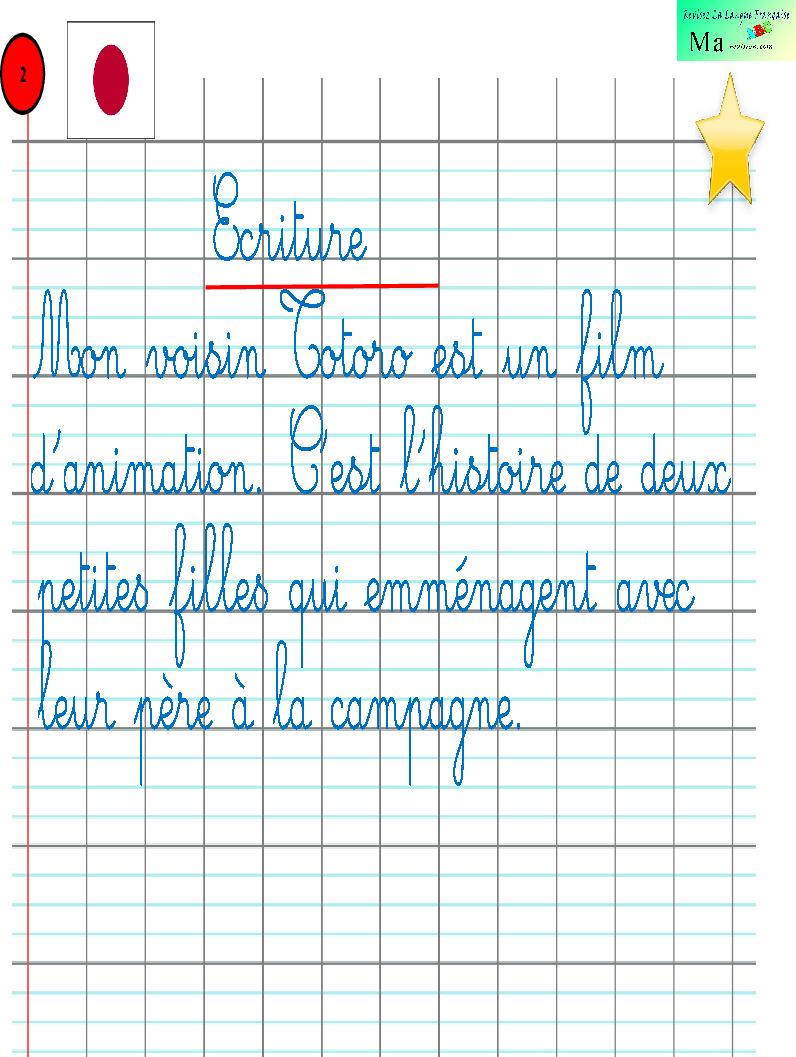 Revisez La Langue Française
Ma revision.com
2
Ecriture
Mon voisin Totoro est un film
d'animation. C'est l'histoire de deux
petites filles qui emménagent avec
leur père à la campagne.